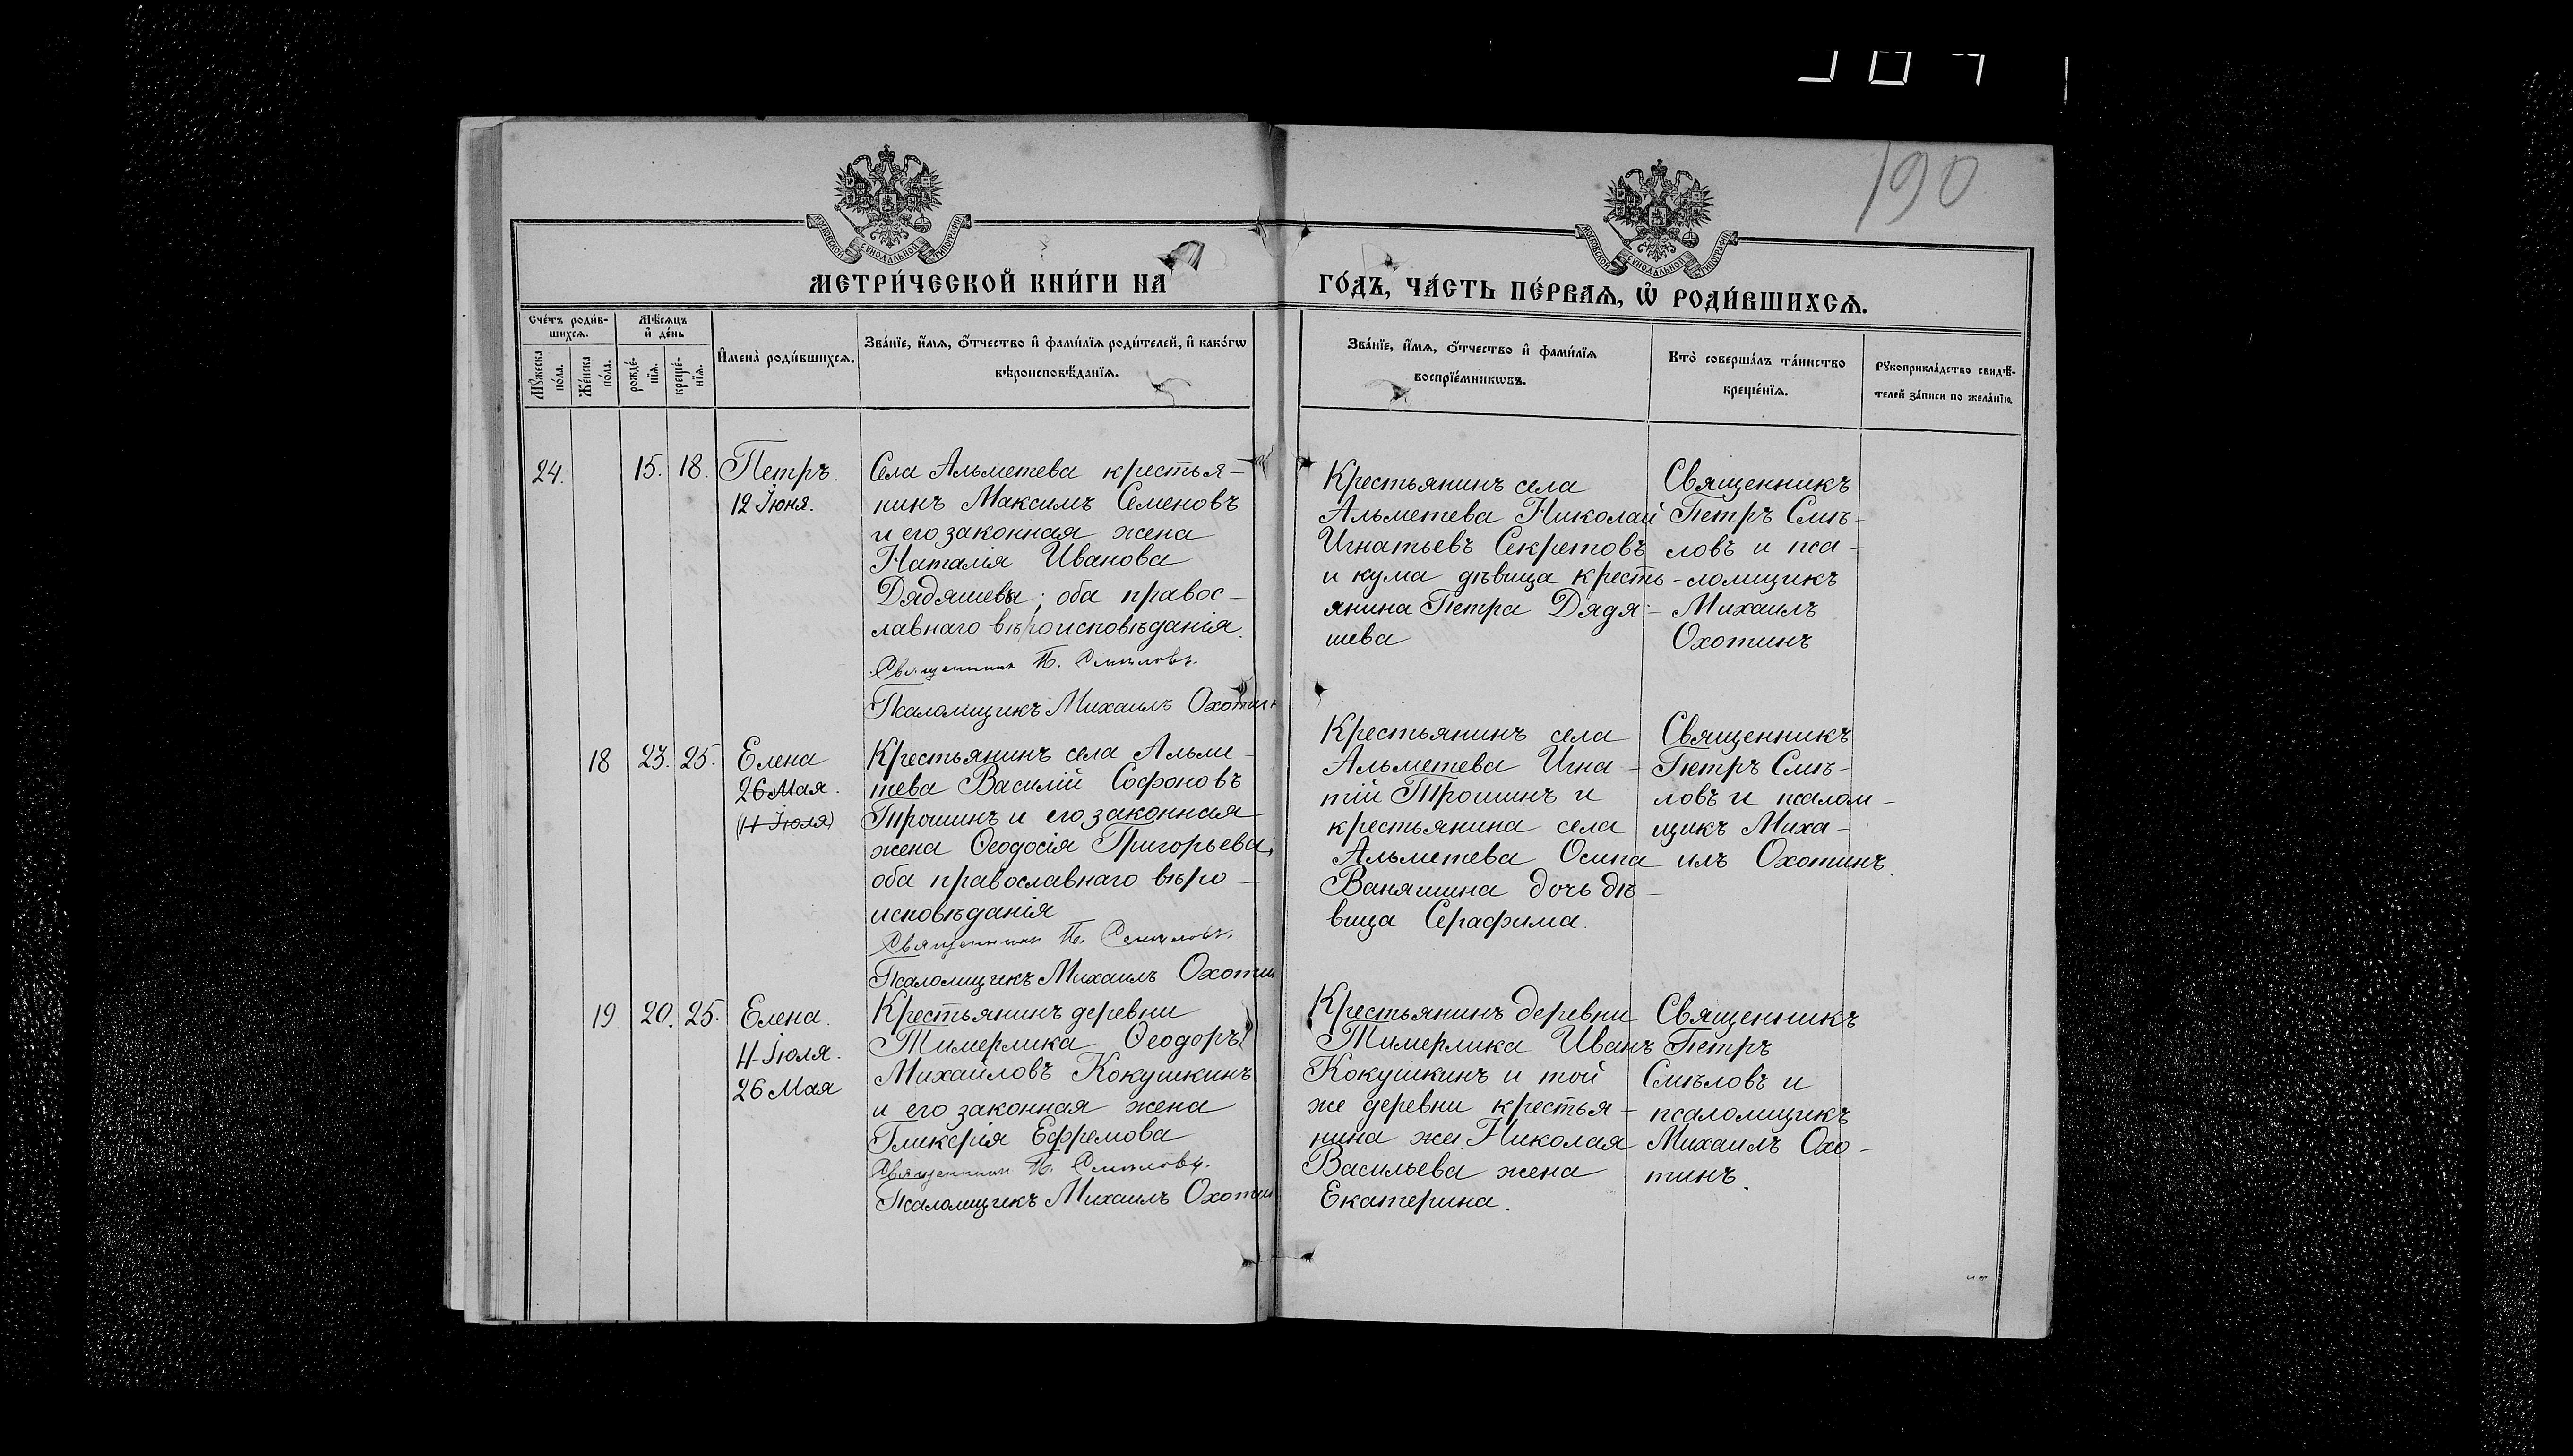 190
МОСКОВСКОЙ СѴНОДАЛЬНОЙ ТИПОГРАФІИ
МОСКОВСКОЙ СѴНОДАЛЬНОЙ ТИПОГРАФІИ
МЕТРИ́ЧЕСКОЙ КНИ́ГИ НА
ГО́ДЪ, ЧА́СТЬ ПЕ́РВАѦ, Ѡ҆ РОДИ́ВШИХСѦ.
Сче́тъ роди́в-
шихсѧ.
Мѣ́сѧцъ
и҆ де́нь
Мꙋ́жеска
по́ла.
Же́нска
по́ла.
рожде́-
нїѧ.
креще́-
нїѧ.
И҆мена̀ роди́вшихсѧ.
Зва́нїе, и҆́мѧ, ѻ҆́тчество и҆ фами́лїѧ роди́телей, и҆ како́гѡ
вѣроисповѣ́данїѧ.
Зва́нїе, и҆́мѧ, ѻ҆́тчество и҆ фами́лїѧ
воспрїе́мникѡвъ.
Кто̀ соверша́лъ та́инство
креще́нїѧ.
Рꙋкоприкла́дство свидѣ́-
телей за́писи по жела́нїю.
24.
15.
18.
Петръ.
12 Іюня.
Села Альметева крестья-
нинъ Максимъ Семеновъ
и его законная жена
Наталія Иванова
Дядяшевы; оба правос-
лавнаго вѣроисповѣданія.
Священникъ П. Смѣловъ.
Псаломщикъ Михаилъ Охотин
Крестьянинъ села
Альметева Николай
Игнатьевъ Секретовъ
и кума дѣвица кресть-
янина Петра Дядя-
шева
Священникъ
Петръ Смѣ-
ловъ и пса-
ломщикъ
Михаилъ
Охотинъ
18
23.
25.
Елена
26 Мая.
(11 Іюля)
Крестьянинъ села Альме-
тева Василій Софоновъ
Трошинъ и его законная
жена Ѳеодосія Григорьева;
оба православнаго вѣро-
исповѣданія
Священникъ П. Смѣловъ.
Псаломщикъ Михаилъ Охотин
Крестьянинъ села
Альметева Игна-
тій Трошинъ и
крестьянина села
Альметева Осипа
Ваняшина дочь дѣ-
вица Серафима.
Священникъ
Петръ Смѣ-
ловъ и псалом-
щикъ Миха-
илъ Охотинъ.
19.
20.
25.
Елена.
11 Іюля.
26 Мая
Крестьянинъ деревни
Тимерлика Ѳеодоръ
Михайловъ Кокушкинъ
и его законная жена
Гликерія Ефремова
Священникъ П. Смѣловъ.
Псаломщикъ Михаилъ Охотин
Крестьянинъ деревни
Тимерлика Иванъ
Кокушкинъ и той
же деревни крестья-
нина же Николая
Васильева жена
Екатерина.
Священникъ
Петръ
Смѣловъ и
псаломщикъ
Михаилъ Охо-
тинъ.